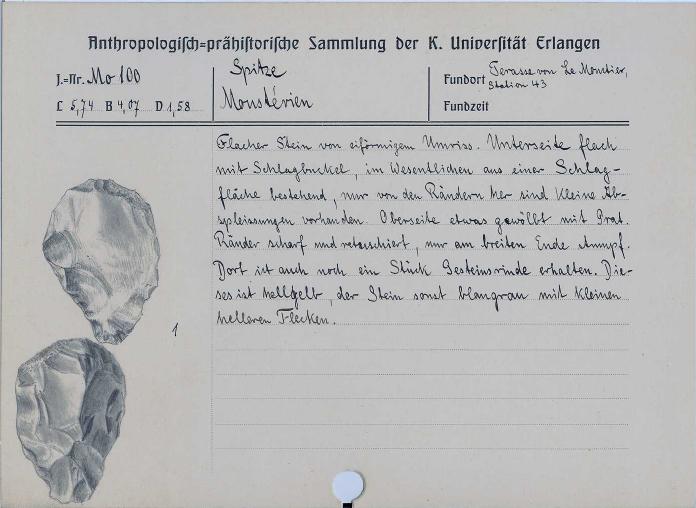 Anthropologisch=prähistorische Sammlung der K. Universität Erlangen
J.=Nr. Mo 100
L 5,74 B 4,07 D 1,58
Spitze
Moustérien
Fundort Terasse von Le Moustier,
Station 43
Fundzeit
Flacher Stein von eiförmigem Umriss. Unterseite flach
mit Schlagbuckel, im Wesentlichen aus einer Schlag-
fläche bestehend, nur von den Rändern her sind kleine Ab-
spleissungen vorhanden. Oberseite etwas gewölbt mit Grat.
Ränder scharf und retuschiert, nur am breiten Ende stumpf.
Dort ist auch noch ein Stück Gesteinsrinde erhalten. Die-
ses ist hellgelb, der Stein sonst blaugrau mit kleinen
helleren Flecken.
1